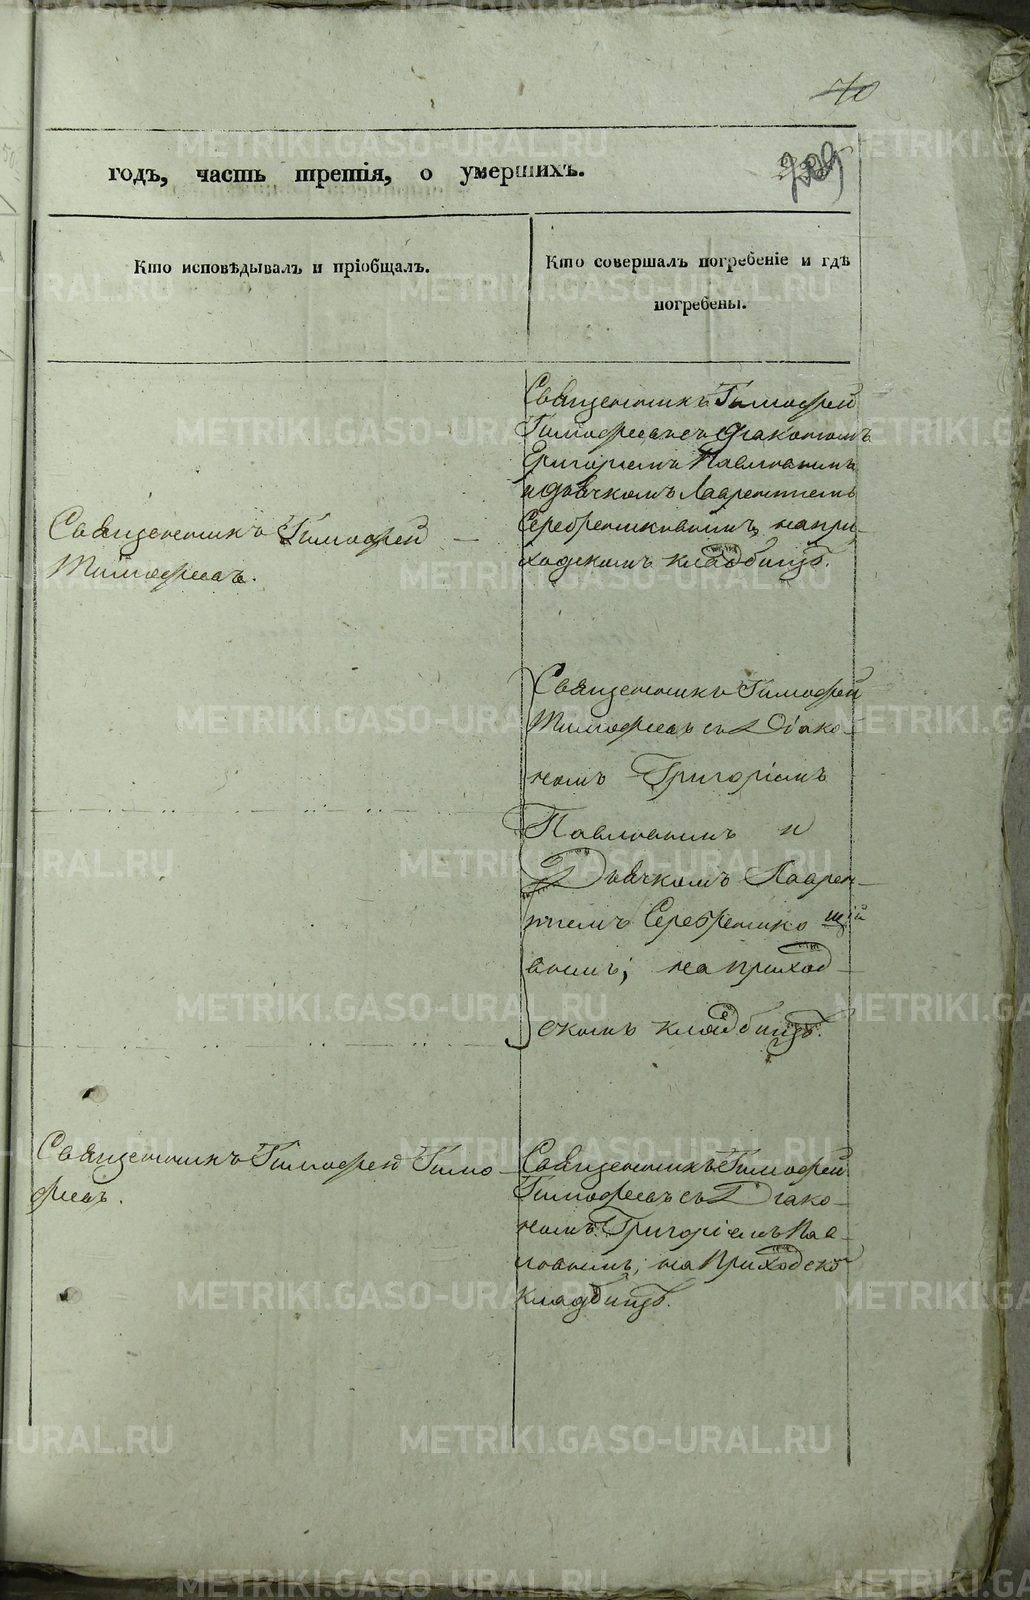 70
годъ, часть третія, о умершихъ.
Кто исповѣдывалъ и пріобщалъ.
Кто совершалъ погребеніе и гдѣ
погребены.
Священникъ Тимофей
Тимофеевъ.
Священникъ Тимофей
Тимофеевъ съ Діакономъ
Григоріемъ Павловымъ
и дьячкомъ Лаврентіемъ
Серебрениковымъ, на при
ходскомъ кладбищѣ.
Священникъ Тимофей
Тимофеевъ съ Діако-
номъ Григоріемъ
Павловымъ и
Дьячкомъ Лаврен-
тіемъ Серебренико
вымъ; на приход-
скомъ кладбищѣ.
Священникъ Тимофей Тимо-
феевъ.
Священникъ Тимофей
Тимофеевъ съ Діако-
номъ Григоріемъ Пав-
ловымъ, на Приходско
кладбищѣ.
METRIKI.GASO-URAL.RU